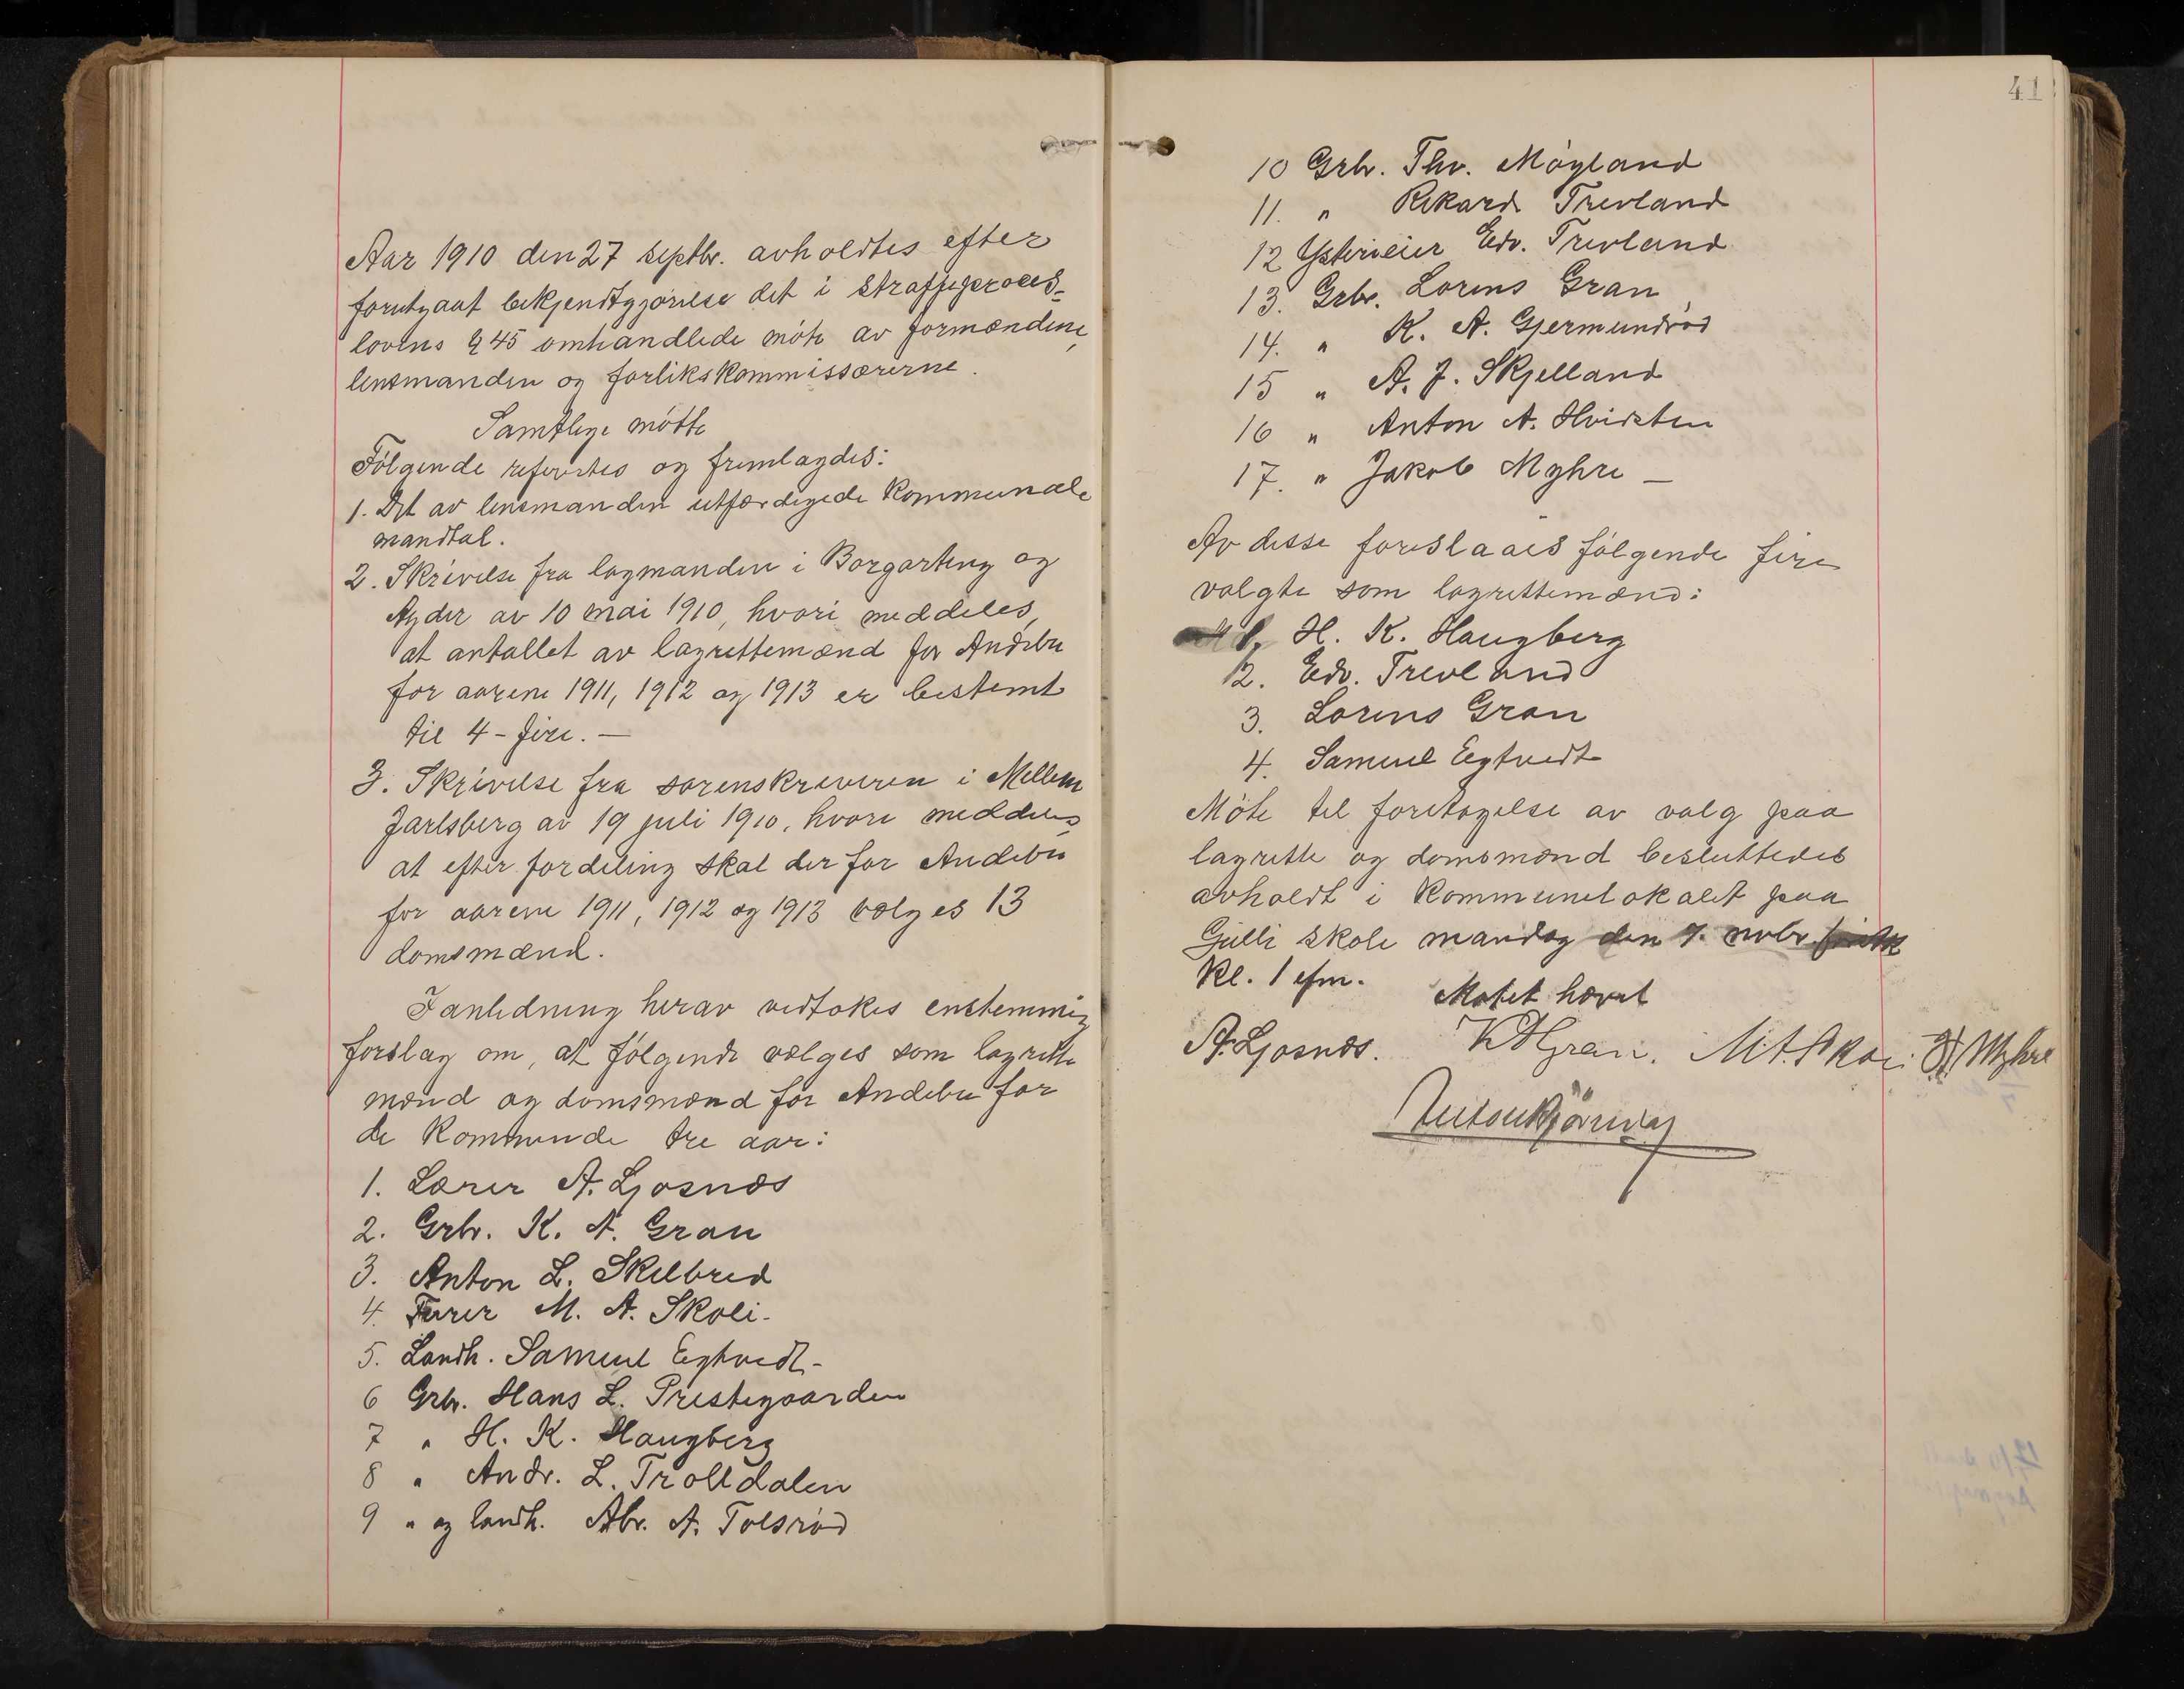 Aar 1910 den 27 septbr. avholdtes efter
forutgaat bekjendtgjørelse det i straffeproces-
lovens § 45 omhandlede møte av formændene,
lensmanden og forlikskommissærerne.
Samtlige møtte
Følgende refertes og fremlagdes:
1. Det av lensmanden utfærdigede kommunale
mandtal.
2. Skrivelse fra lagmanden i Borgarting og
Agder av 10 mai 1910, hvori meddeles,
at antallet av lagrettemænd for Andebu
for aarene 1911, 1912 og 1913 er bestemt
til 4 - fire. -
3. Skrivelse fra sorenskriveren i Mellem
Jarlsberg av 19 juli 1910, hvori meddeles,
at efter fordeling skal der for Andebu
for aarene 1911, 1912 og 1913 vælges 13
domsmænd.
I anledning herav vedtokes enstemmig
forslag om, at følgende vælges som lagrette
mænd og domsmænd for Andebu for
de kommende tre aar:
1. Lærer A. Ljosnæs
2. Grbr. K. A. Gran
3. Anton L. Skilbred
4. Furer M. A. Skoli -
5. Landh. Samuel Egtvedt -
6 Grbr. Hans L. Prestegaarden
7 " H. K. Haugberg
8 " Andr. L. Trolldalen
9 " og landh. Abr. A. Tolsrød
41
10 Grbr. Thv. Møyland
11. " Rikard Trevland
12 Ysterieier Edv. Trevland
13. Grbr. Lorens Gran
14. " K. A. Gjermundrød
15 " A. J. Skjelland
16 " Anton A. Hvidsten
17. " Jakob Myhre -
Av disse foreslaaes følgende fire
valgte som lagrettemænd:
1. H. K. Haugberg
2. Edv. Trevland
3. Lorens Gran
4. Samuel Egtvedt
Møte til foretagelse av valg paa
lagrette og domsmænd besluttedes
avholdt i kommunelokalet paa
Gulli skole mandag den 7. novbr.
kl. 1 efm.
Møtet hævet
A. Ljosnæs. K A Gran. M. A. Skoli. Myhre